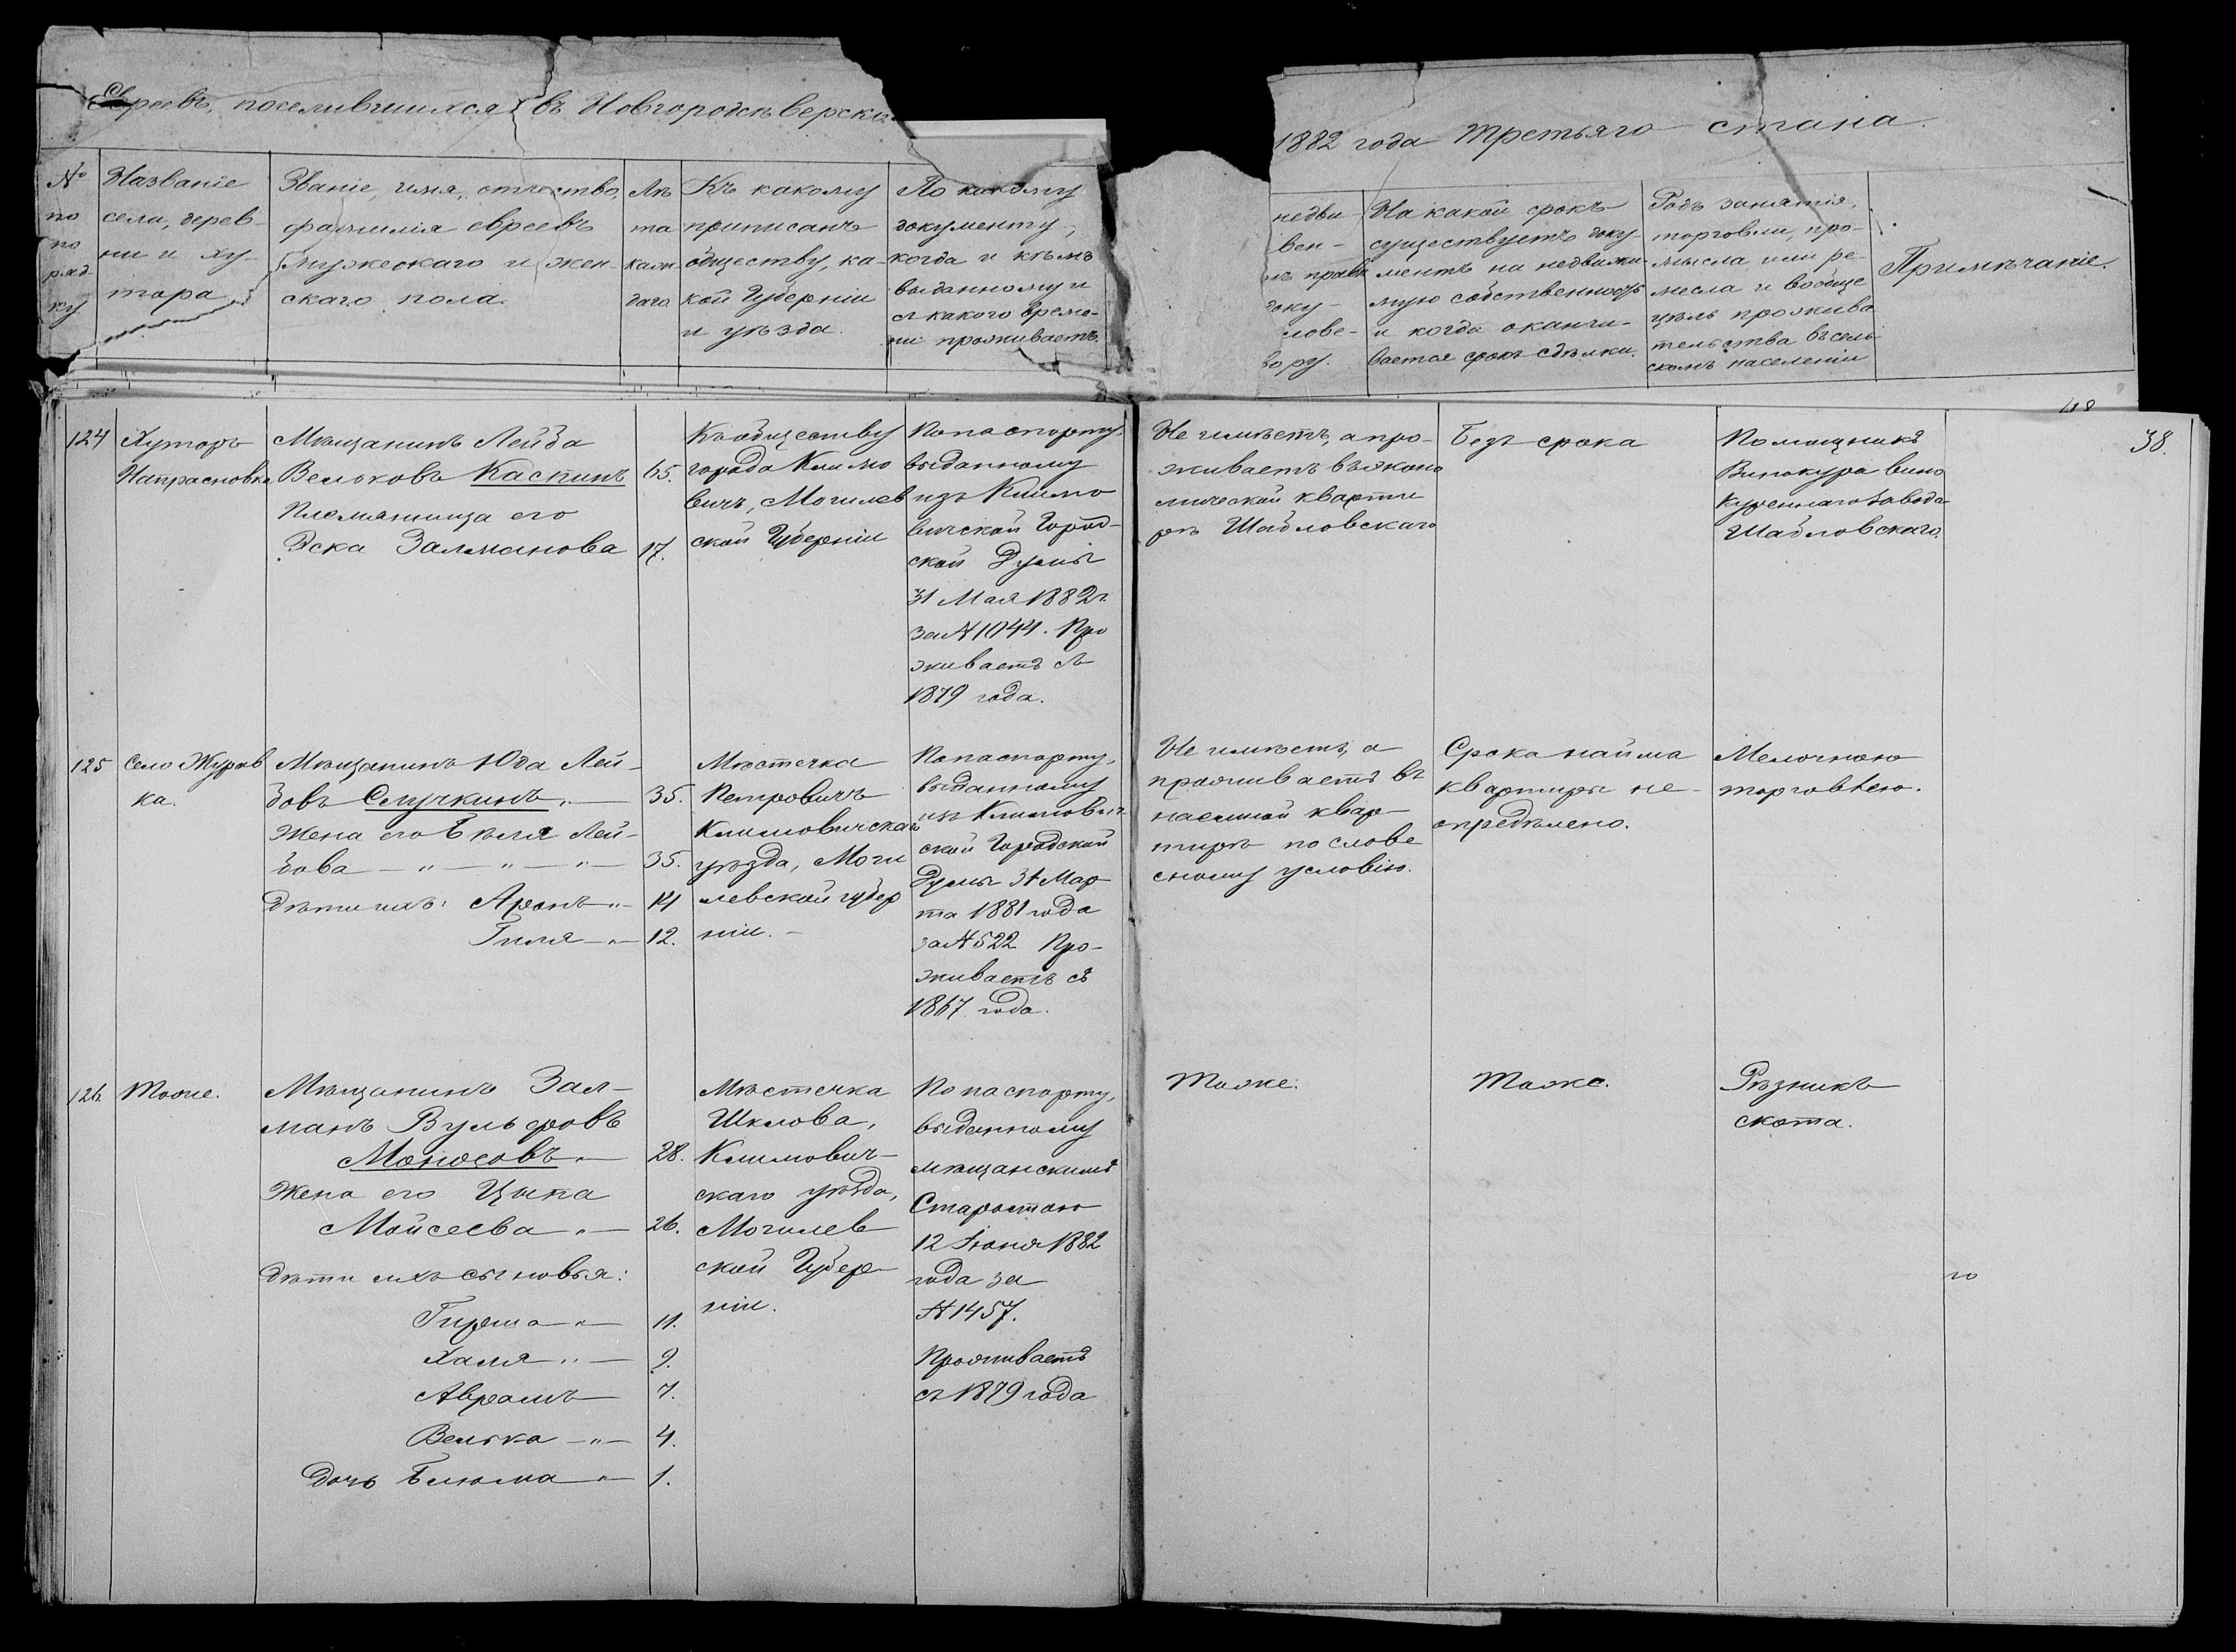 Евреевъ, поселившихся въ Новгородсѣверско
1882 года Третьяго стана.
№ по по ряд ку
Названіе
села, дерев-
ни и ху-
тора
Званіе, имя, отчество,
фамилія евреевъ
мужескаго и жен-
скаго пола.
Лѣ
та
каж
даго.
Къ какому
приписанъ
обществу, ка-
кой Губерніи
и уѣзда.
По какому
документу,
когда и кѣмъ
выданному и
съ какого време-
ни проживаетъ.
недви-
вен-
правѣ
доку-
слове-
вору.
На какой срокъ
существуетъ доку-
ментъ на недвижи-
мую собственность
и когда оканчи-
вается срокъ сдѣлки.
Родъ занятія,
торговли, про-
мысла или ре-
месла и вообще
цѣль прожива
тельства въ сель
скомъ населеніи
Примѣчаніе.
38.
124
Хуторъ
Напрасновка
Мѣщанинъ Лейба
Вельковъ Каспинъ 65.
Племянница его
Эска Залманова 17.
Къ обществу
города Климо
вичъ, Могилев
ской Губерніи
По паспорту,
выданному
изъ Климо
вичской Город-
ской Думы
31 Мая 1882 г.
за № 1044. Про
живаетъ съ
1879 года.
Не имѣетъ, а про-
живаетъ въ экономической кварти
рѣ Шабловскаго
Безъ срока
Помощникъ
Винокура вино
куреннаго завода
Шабловскаго.
125
Село Журав
ка.
Мѣщанинъ Юда Лей-
бовъ Случкинъ „ — 35.
Жена его Бѣля Лей-
бова — „ — „ — „ — 35.
Дѣти ихъ: Аронъ „ — 14
Гиля — „ — 12.
Мѣстечка
Петровичъ
Климовичскаго
уѣзда, Моги
левской губер
ніи. —
По паспорту,
выданному
изъ Климович
ской Городской
Думы 31 Мар-
та 1881 года
за № 522 Про-
живаетъ съ
1867 года.
Не имѣетъ, а
проживаетъ въ
наемной квар-
тирѣ по слове
сному условію.
Срока найма
квартиры не-
опредѣлено.
Мелочною
торговлею.
126.
Тоже.
Мѣщанинъ Зал-
манъ Вульфовъ
Моносовъ „ — 28.
Жена его Цыпа
Мойсеева „ — 26.
Дѣти ихъ сыновья:
Гирша „ — 11.
Халя „ — 9.
Аврамъ — 7.
Велька — „ — 4.
Дочь Блюма „ — 1.
Мѣстечка
Шклова,
Климович-
скаго уѣзда,
Могилев
ской Губер-
ніи.
По паспорту,
выданному
мѣщанскимъ
Старостою
12 Іюня 1882
года за
№ 1457.
Проживаетъ
съ 1879 года
Тоже.
Тоже.
Рѣзникъ
скота.